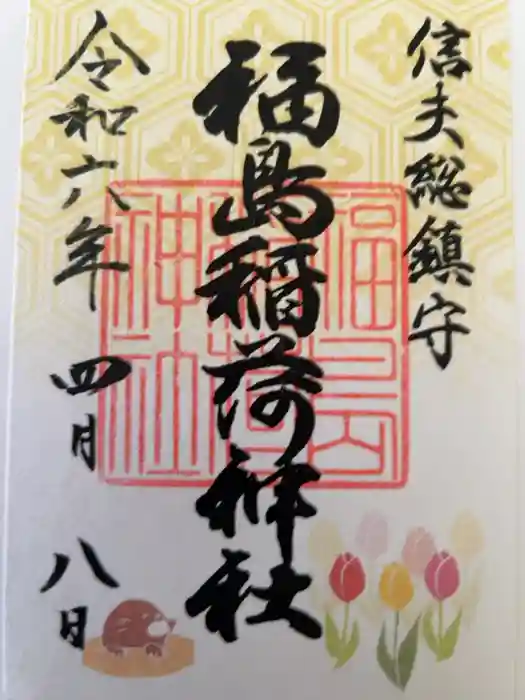 信夫総鎮守
福島稲荷神社
福島
稲荷
神社
令和六年 四月 八日